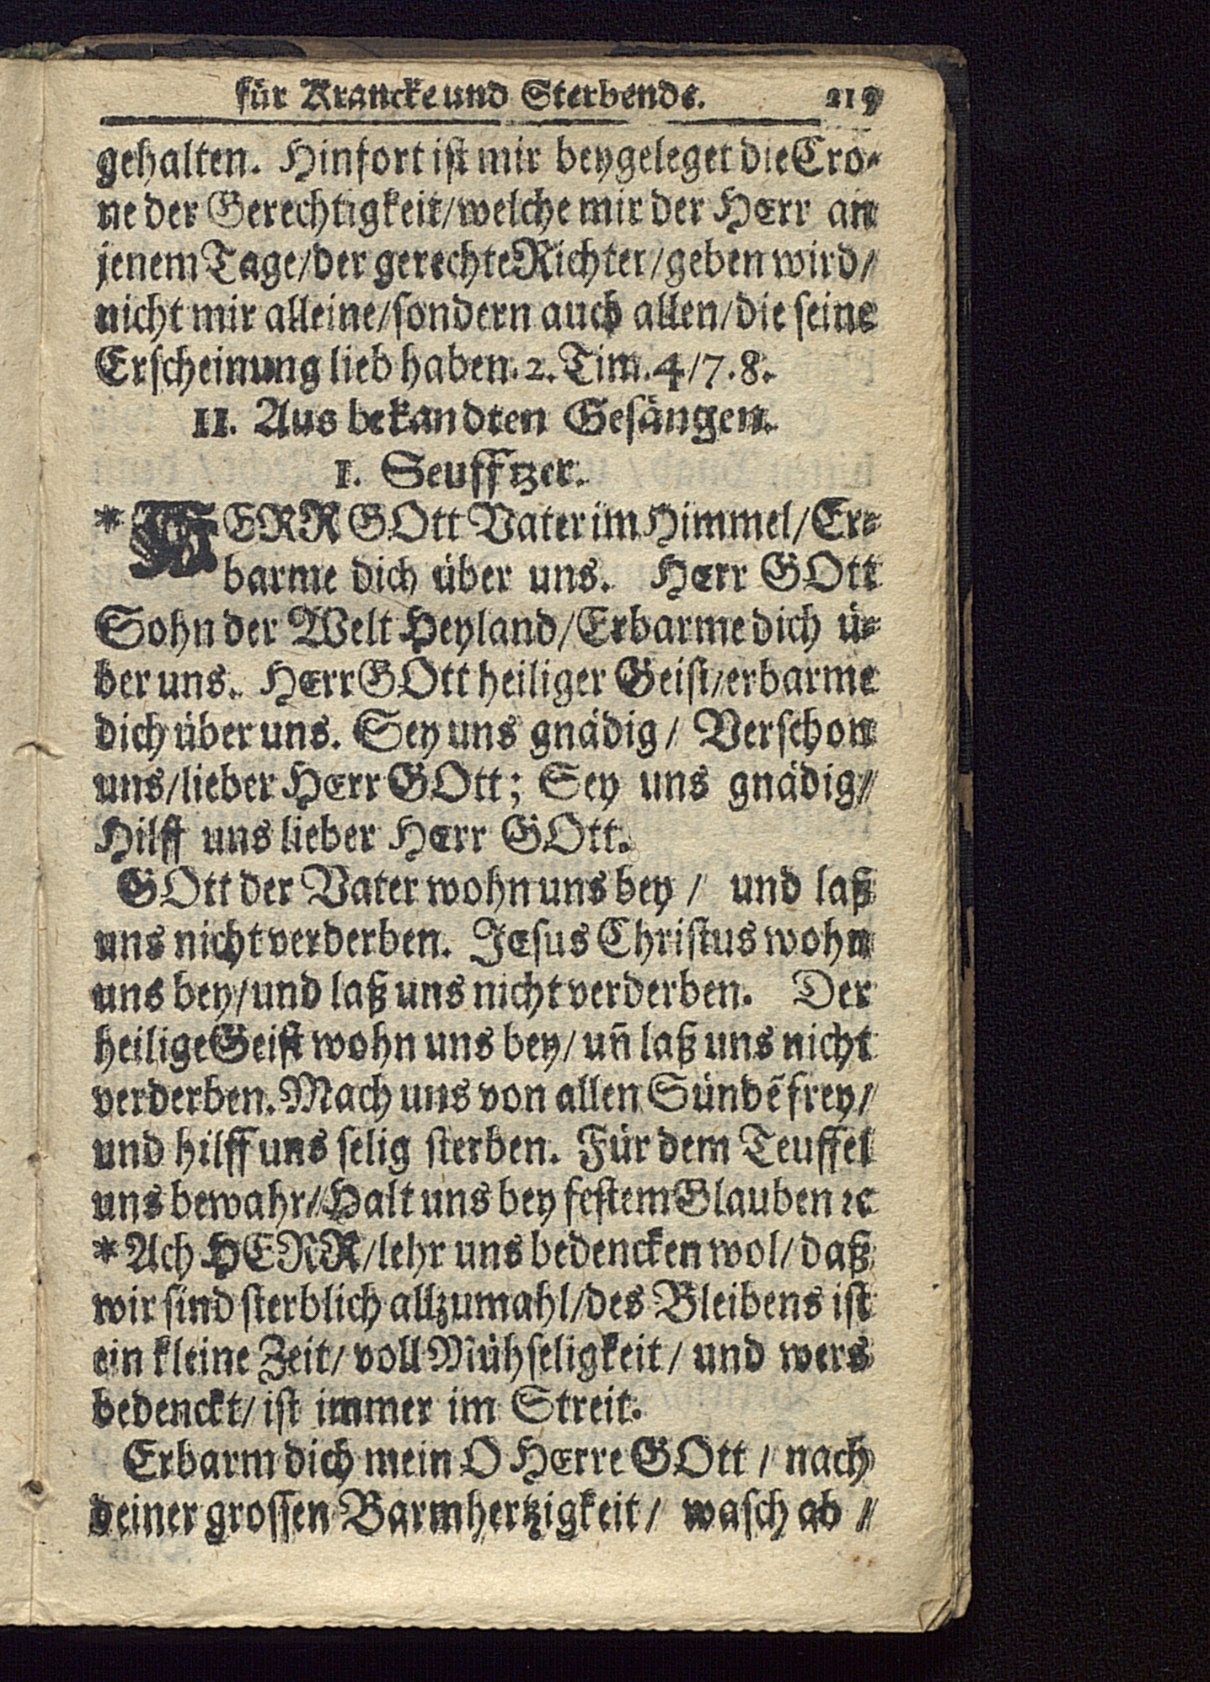 für Krancke und Sterbende. 219
gehalten. Hinfort ist mir beygeleget die Cro-
ne der Gerechtigkeit/welche mir der HErr an
jenem Tage/der gerechte Richter/geben wird/
nicht mir alleine/sondern auch allen/die seine
Erscheinung lieb haben. 2. Tim. 4/7. 8.
II. Aus bekandten Gesängen.
1. Seufftzer.
* HERR GOtt Vater im Himmel/Er-
barme dich über uns. HErr GOtt
Sohn der Welt Heyland/Erbarme dich ü-
ber uns. HErr GOtt heiliger Geist/erbarme
dich über uns. Sey uns gnädig/ Verschon
uns/lieber HErr GOtt; Sey uns gnädig/
Hilff uns lieber HErr GOtt.
GOtt der Vater wohn uns bey / und laß
uns nicht verderben. JEsus Christus wohn
uns bey/und laß uns nicht verderben. Der
heilige Geist wohn uns bey/ uñ laß uns nicht
verderben. Mach uns von allen Sündẽ frey/
und hilff uns selig sterben. Für dem Teuffel
uns bewahr/Halt uns bey festem Glauben ꝛc
* Ach HERR/lehr uns bedencken wol/ daß
wir sind sterblich allzumahl/des Bleibens ist
ein kleine Zeit/ voll Mühseligkeit/ und wers
bedenckt/ ist immer im Streit.
Erbarm dich mein O HErre GOtt / nach
deiner grossen Barmhertzigkeit/ wasch ab /